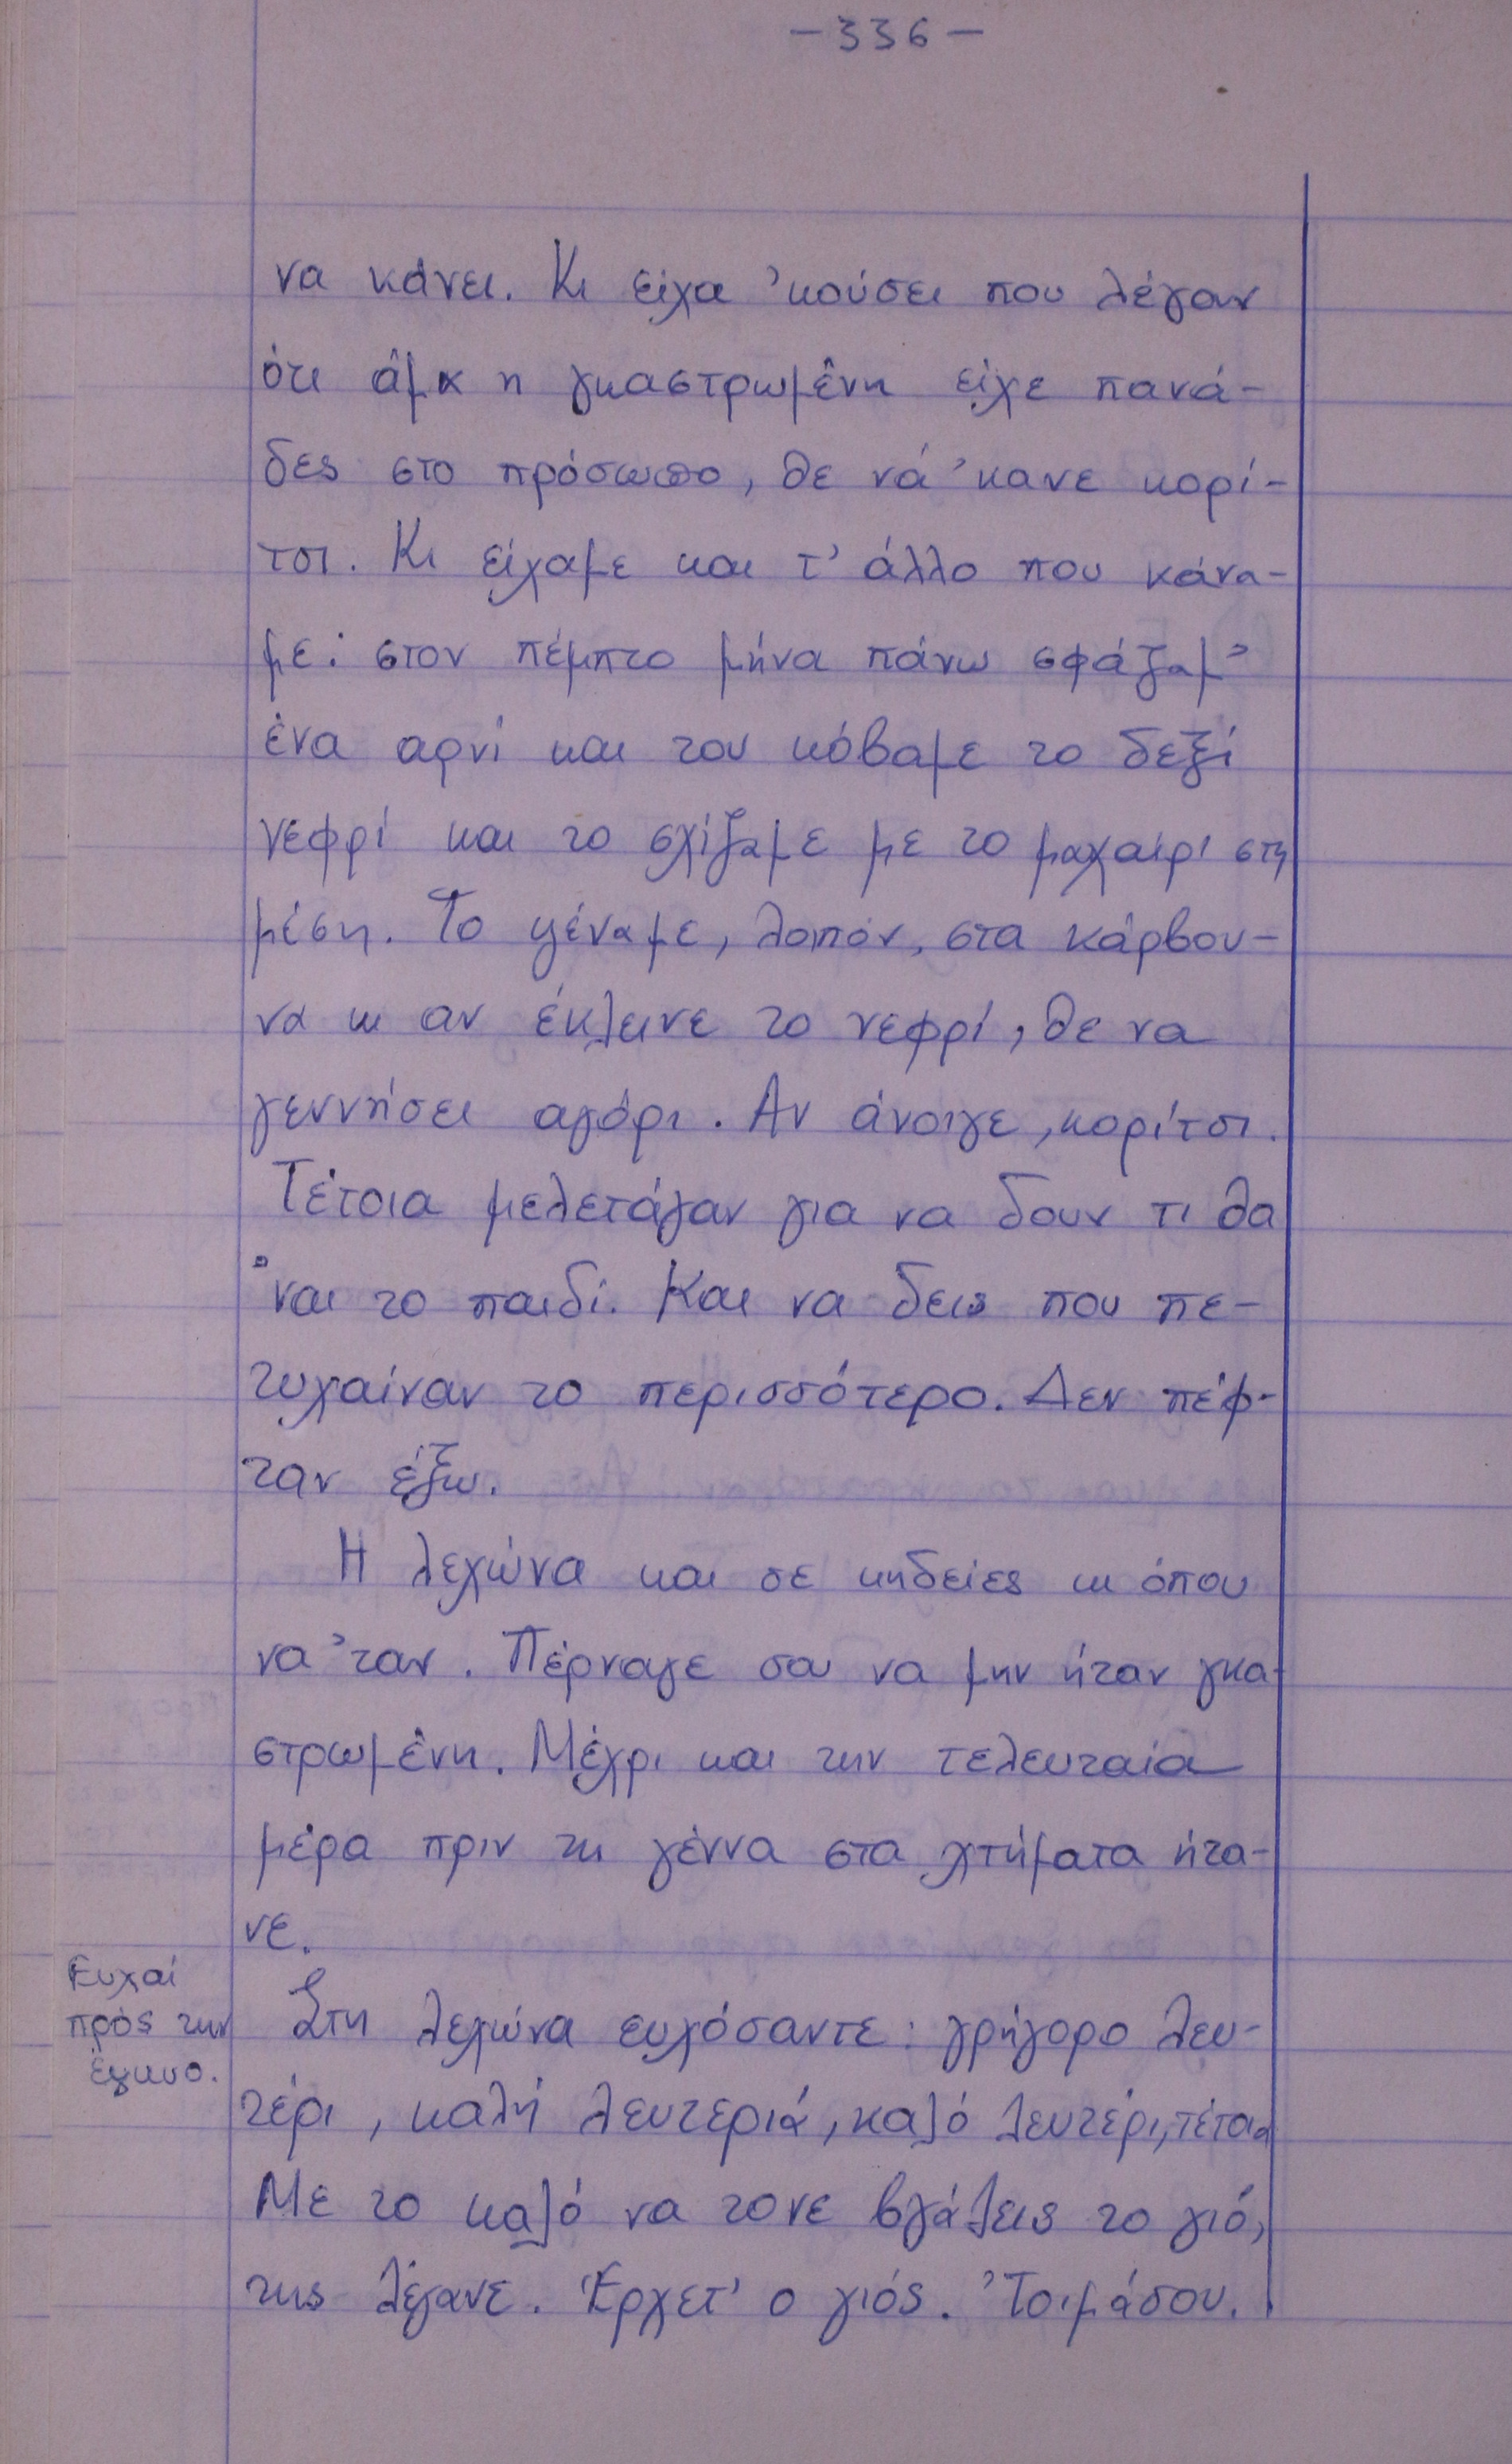 -336-
να κάνει. Κι είχα 'κούσει που λέγαν
ότι άμα η γκαστρωμένη είχε πανά-
δες στο πρόσωπο, θε νά 'κανε κορί-
τσι. Κι είχαμε και τ' άλλο που κάνα-
με: στον πέμπτο μήνα πάνω σφάζαμ'
ένα αρνί και του κόβαμε το δεξί
νεφρί και το σχίζαμε με το μαχαίρι στη
μέση. Το ψέναμε, λοπόν, στα κάρβου-
να κι αν έκλεινε το νεφρί, θε να
γεννήσει αγόρι. Αν άνοιγε, κορίτσι.
Τέτοια μελετάγαν για να δουν τι θα
'ναι το παιδί. Και να δεις που πε-
τυχαίναν το περισσότερο. Δεν πέφ-
ταν έξω.
Η λεχώνα και σε κηδείες κι όπου
να 'ταν. Πέρναγε σα να μην ήταν γκα-
στρωμένη. Μέχρι και την τελευταία
μέρα πριν τη γέννα στα χτήματα ήτα-
νε.
Ευχαί
πρός την
έγκυο.
Στη λεχώνα ευχόσαντε: γρήγορο λευ-
τέρι, καλή λευτεριά, καλό λευτέρι, τέτοια
Με το καλό να τονε βγάλεις το γιό,
της λέγανε. Έρχετ' ο γιός. 'Τοιμάσου.